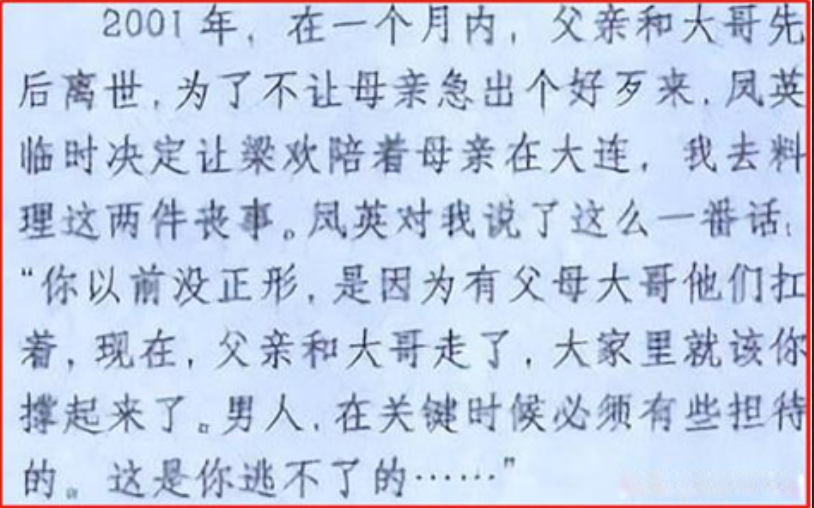 2001年，在一个月内，父亲和大哥先
后离世，为了不让母亲急出个好歹来，凤英
临时决定让梁欢陪着母亲在大连，我去料
理这两件丧事。凤英对我说了这么一番话：
“你以前没正形，是因为有父母大哥他们扛
着，现在，父亲和大哥走了，大家里就该你
撑起来了。男人，在关键时候必须有些担待
的。这是你逃不了的……”